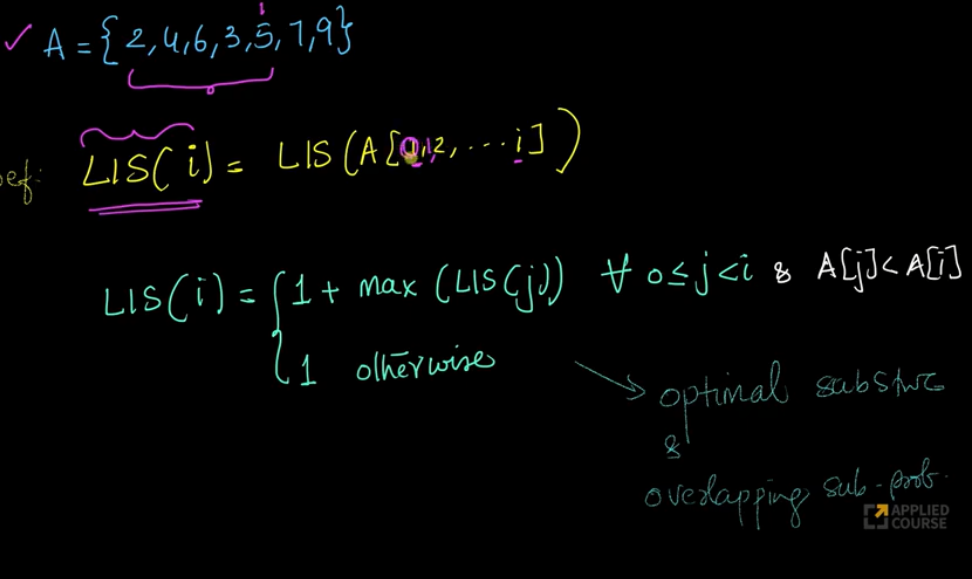 ✓ A = {2,4,6,3,5,7,9}
Def: LIS(i) = LIS(A[0,1,2,...i])
LIS(i) = { 1 + max (LIS(j)) ∀ 0≤j<i & A[j]<A[i]
{ 1 otherwise
→ optimal substruc
&
overlapping sub-prob.
APPLIED
COURSE